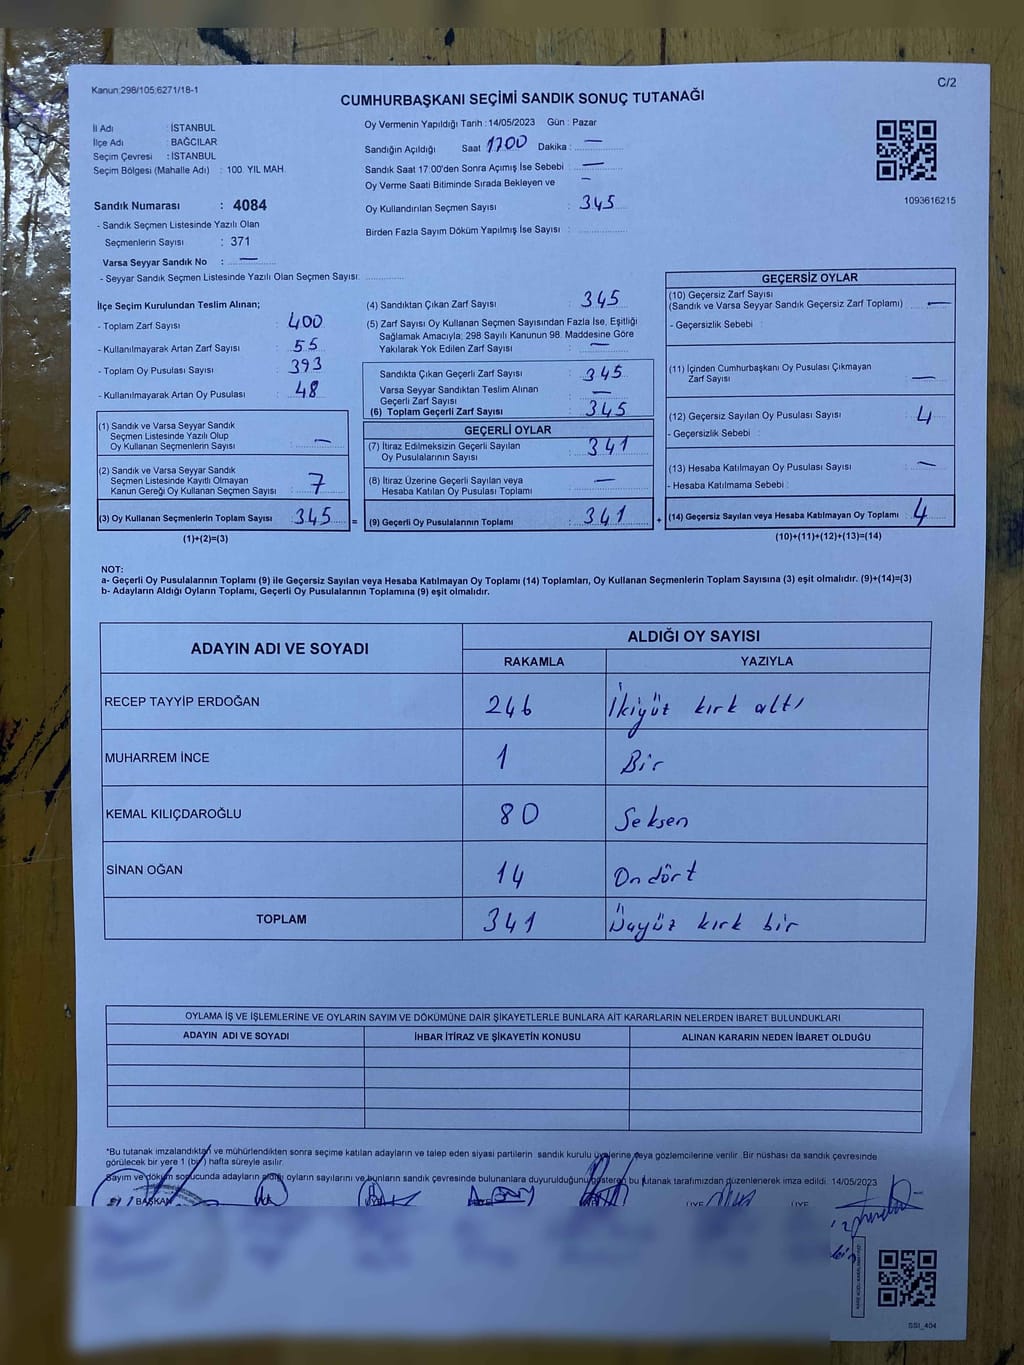 Kanun:298/105;6271/18-1
C/2
CUMHURBAŞKANI SEÇİMİ SANDIK SONUÇ TUTANAĞI
İl Adı : İSTANBUL
İlçe Adı : BAĞCILAR
Seçim Çevresi : İSTANBUL
Seçim Bölgesi (Mahalle Adı) : 100. YIL MAH.
Sandık Numarası : 4084
- Sandık Seçmen Listesinde Yazılı Olan
Seçmenlerin Sayısı : 371
Varsa Seyyar Sandık No : —
- Seyyar Sandık Seçmen Listesinde Yazılı Olan Seçmen Sayısı: ............
Oy Vermenin Yapıldığı Tarih : 14/05/2023 Gün : Pazar
Sandığın Açıldığı Saat 1700 Dakika : —
Sandık Saat 17:00'den Sonra Açımış İse Sebebi : —
Oy Verme Saati Bitiminde Sırada Bekleyen ve –
Oy Kullandırılan Seçmen Sayısı : 345
Birden Fazla Sayım Döküm Yapılmış İse Sayısı : ............
1093616215
İlçe Seçim Kurulundan Teslim Alınan;
- Toplam Zarf Sayısı : 400
- Kullanılmayarak Artan Zarf Sayısı : 55
- Toplam Oy Pusulası Sayısı : 393
- Kullanılmayarak Artan Oy Pusulası : 48
(1) Sandık ve Varsa Seyyar Sandık
Seçmen Listesinde Yazılı Olup
Oy Kullanan Seçmenlerin Sayısı : —
(2) Sandık ve Varsa Seyyar Sandık
Seçmen Listesinde Kayıtlı Olmayan
Kanun Gereği Oy Kullanan Seçmen Sayısı : 7
(3) Oy Kullanan Seçmenlerin Toplam Sayısı : 345
(1)+(2)=(3)
(4) Sandıktan Çıkan Zarf Sayısı : 345
(5) Zarf Sayısı Oy Kullanan Seçmen Sayısından Fazla İse, Eşitliği
Sağlamak Amacıyla; 298 Sayılı Kanunun 98. Maddesine Göre
Yakılarak Yok Edilen Zarf Sayısı : —
Sandıkta Çıkan Geçerli Zarf Sayısı : 345
Varsa Seyyar Sandıktan Teslim Alınan
Geçerli Zarf Sayısı : —
(6) Toplam Geçerli Zarf Sayısı : 345
GEÇERLİ OYLAR
(7) İtiraz Edilmeksizin Geçerli Sayılan
Oy Pusulalarının Sayısı : 341
(8) İtiraz Üzerine Geçerli Sayılan veya
Hesaba Katılan Oy Pusulası Toplamı : —
= (9) Geçerli Oy Pusulalarının Toplamı : 341 +
GEÇERSİZ OYLAR
(10) Geçersiz Zarf Sayısı
(Sandık ve Varsa Seyyar Sandık Geçersiz Zarf Toplamı) : —
- Geçersizlik Sebebi :
(11) İçinden Cumhurbaşkanı Oy Pusulası Çıkmayan
Zarf Sayısı : —
(12) Geçersiz Sayılan Oy Pusulası Sayısı : 4
- Geçersizlik Sebebi :
(13) Hesaba Katılmayan Oy Pusulası Sayısı : —
- Hesaba Katılmama Sebebi :
(14) Geçersiz Sayılan veya Hesaba Katılmayan Oy Toplamı : 4
(10)+(11)+(12)+(13)=(14)
NOT:
a- Geçerli Oy Pusulalarının Toplamı (9) ile Geçersiz Sayılan veya Hesaba Katılmayan Oy Toplamı (14) Toplamları, Oy Kullanan Seçmenlerin Toplam Sayısına (3) eşit olmalıdır. (9)+(14)=(3)
b- Adayların Aldığı Oyların Toplamı, Geçerli Oy Pusulalarının Toplamına (9) eşit olmalıdır.
ADAYIN ADI VE SOYADI ALDIĞI OY SAYISI
RAKAMLA YAZIYLA
RECEP TAYYİP ERDOĞAN 246 İkiyüz kırk altı
MUHARREM İNCE 1 Bir
KEMAL KILIÇDAROĞLU 80 Seksen
SİNAN OĞAN 14 Ondört
TOPLAM 341 Üçyüz kırk bir
OYLAMA İŞ VE İŞLEMLERİNE VE OYLARIN SAYIM VE DÖKÜMÜNE DAİR ŞİKAYETLERLE BUNLARA AİT KARARLARIN NELERDEN İBARET BULUNDUKLARI
ADAYIN ADI VE SOYADI İHBAR İTİRAZ VE ŞİKAYETİN KONUSU ALINAN KARARIN NEDEN İBARET OLDUĞU
*Bu tutanak imzalandıktan ve mühürlendikten sonra seçime katılan adayların ve talep eden siyasi partilerin sandık kurulu üyelerine veya gözlemcilerine verilir. Bir nüshası da sandık çevresinde
görülecek bir yere 1 (bir) hafta süreyle asılır.
Sayım ve döküm sonucunda adayların aldığı oyların sayılarını ve bunların sandık çevresinde bulunanlara duyurulduğunu gösteren bu tutanak tarafımızdan düzenlenerek imza edildi. 14/05/2023
BAŞKAN ÜYE ÜYE ÜYE ÜYE
SSI_404